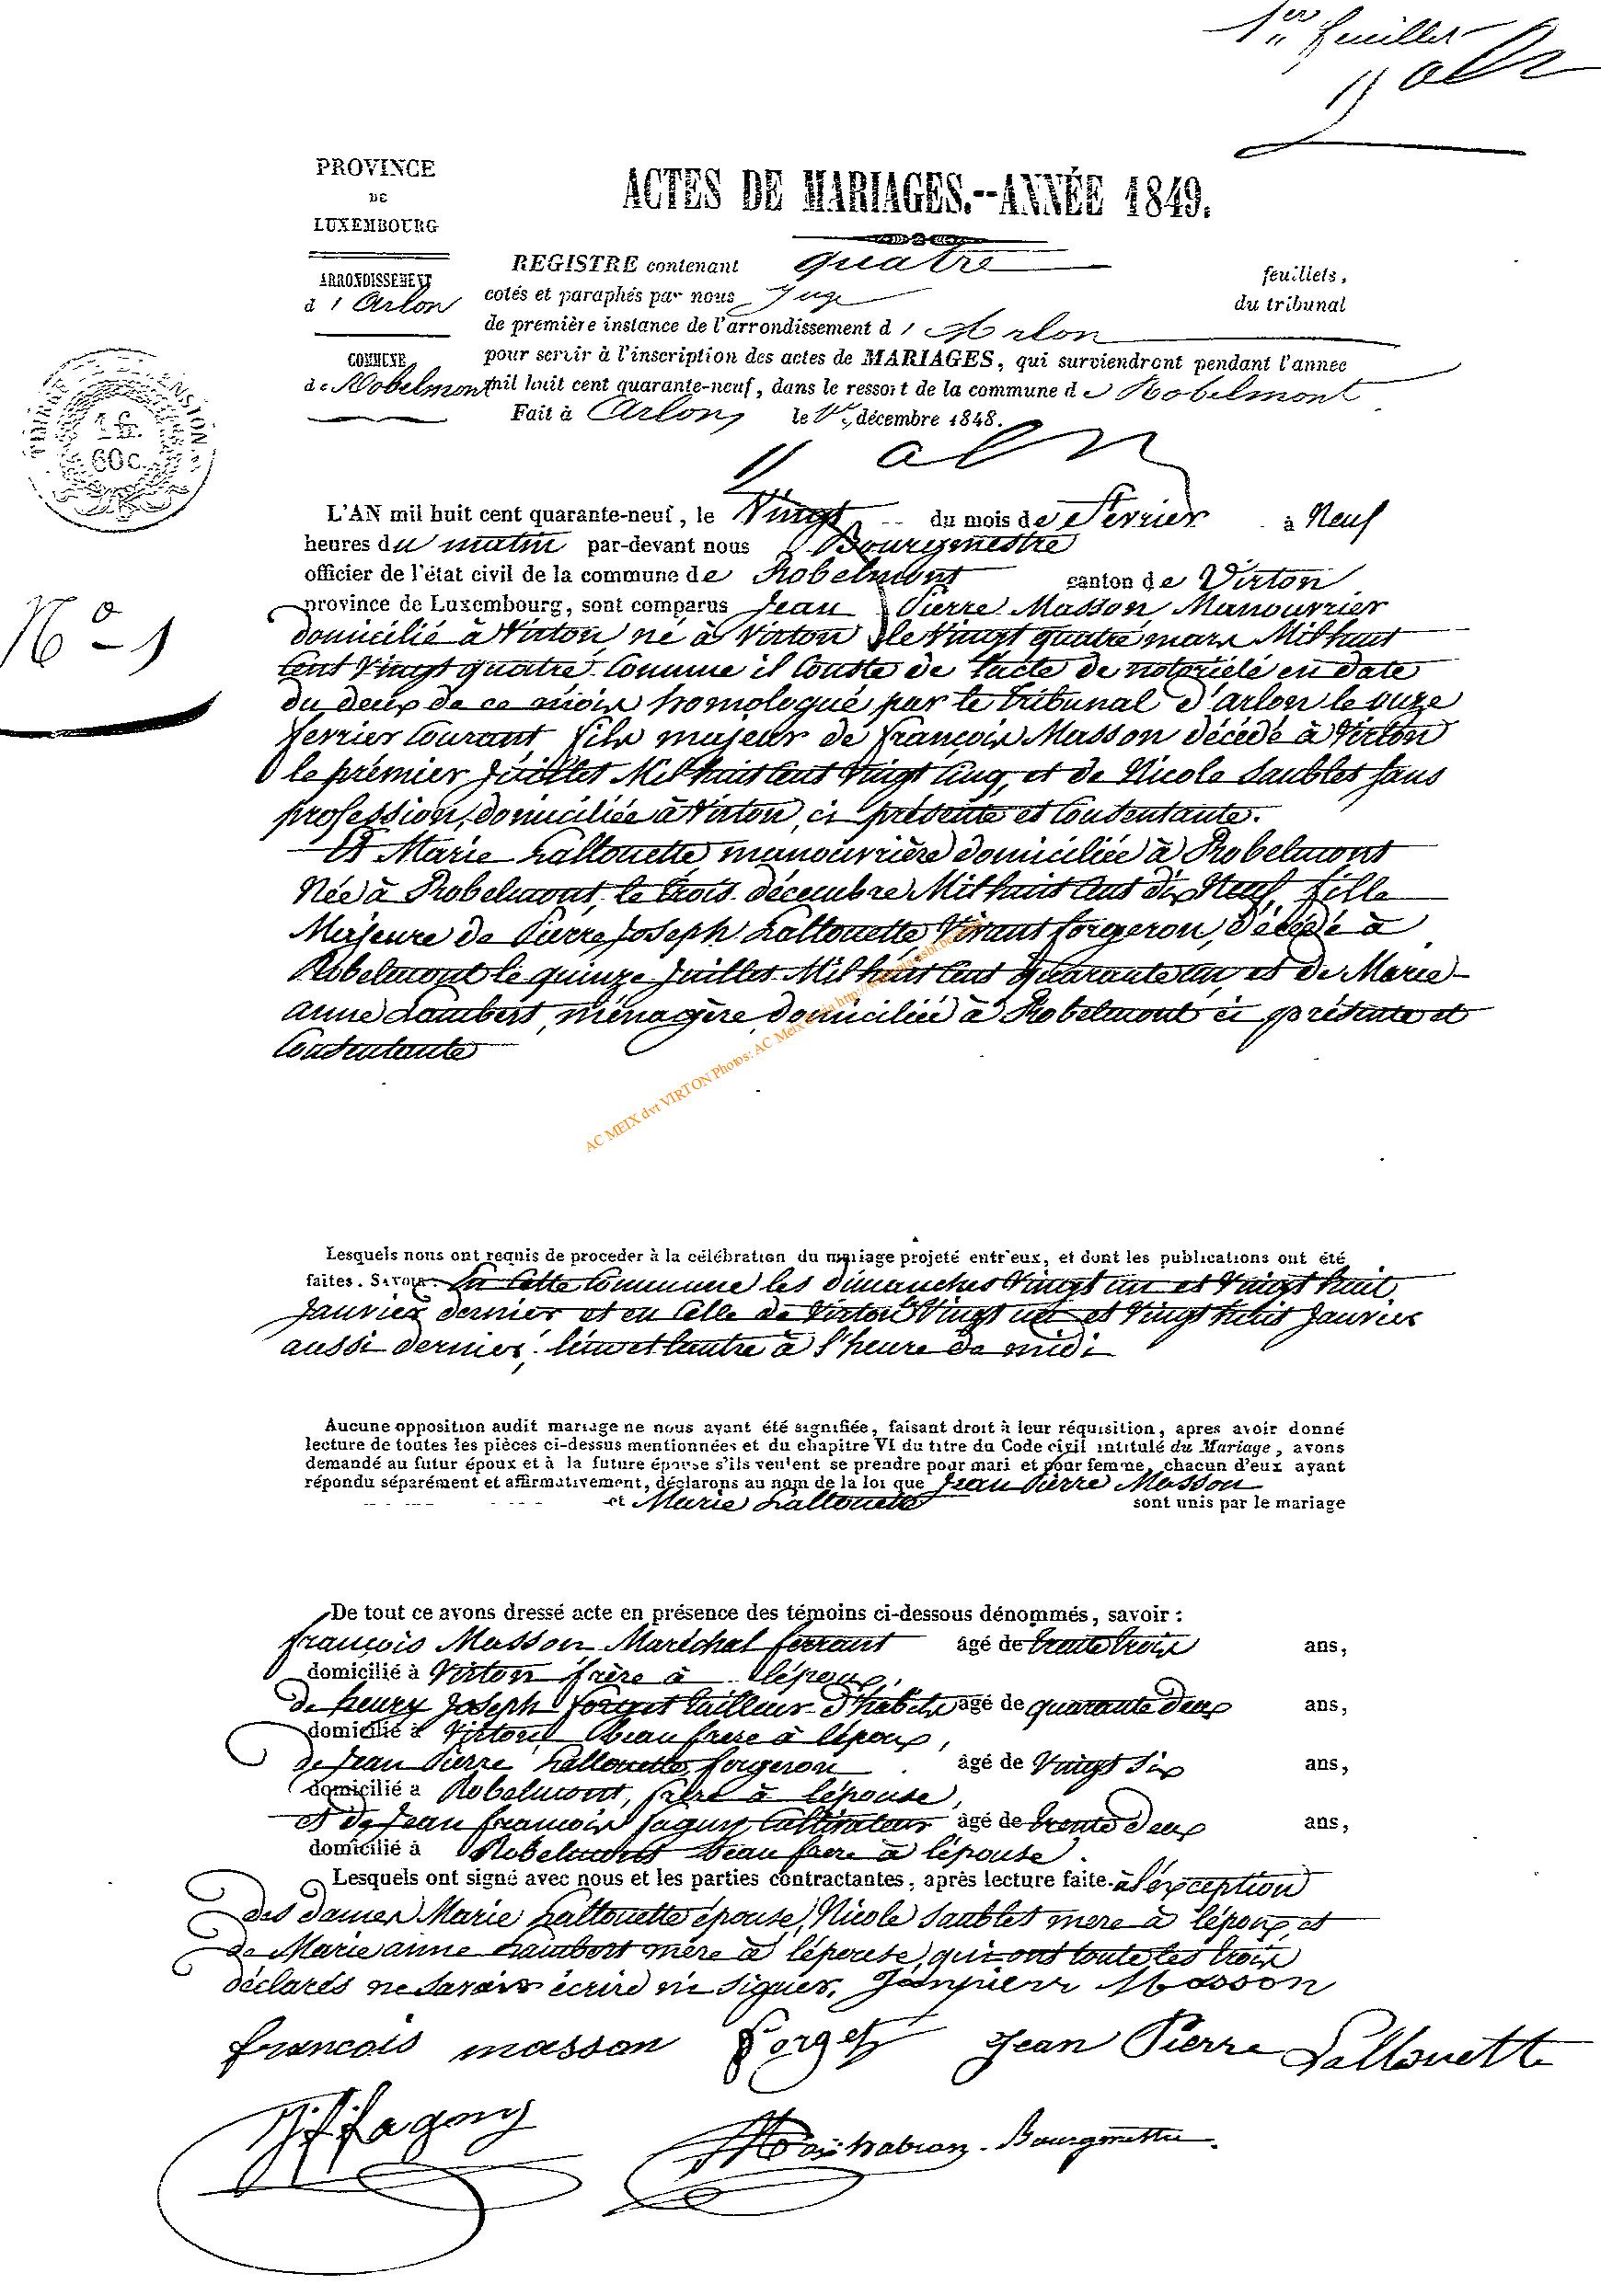 1er feuillet
PROVINCE
DE
LUXEMBOURG
ARRONDISSEMENT
d'Arlon
COMMUNE
de Robelmont
TIMBRE EXTENSION
1 fr.
60 c.
ACTES DE MARIAGES.--ANNÉE 1849.
REGISTRE contenant quatre feuillets,
cotés et paraphés par nous Juge du tribunal
de première instance de l'arrondissement d'Arlon
pour servir à l'inscription des actes de MARIAGES, qui surviendront pendant l'annee
mil huit cent quarante-neuf, dans le ressort de la commune de Robelmont
Fait à Arlon, le 1er décembre 1848.
N° 1
L'AN mil huit cent quarante-neuf, le Vingt du mois de Fevrier à Neuf
heures du matin par-devant nous Bourgmestre
officier de l'état civil de la commune de Robelmont canton de Virton
province de Luxembourg, sont comparus Jean Pierre Masson, Manouvrier
domicilié à Virton, né à Virton le vingt quatre mars Mil huit
cent vingt quatre Comme il Conste de l'acte de notoriété en date
du deux de ce mois homologué par le tribunal d'arlon le onze
fevrier Courant, fils majeur de françois Masson décédé à Virton
le premier Juillet Mil huit Cent Vingt Cinq, et de Nicole Saublet sans
profession, domiciliée à Virton, ci présente et Consentante.
Et Marie Lallouette manouvrière domiciliée à Robelmont
Née à Robelmont, le trois décembre Mil huit Cent dix Neuf, fille
Majeure de Pierre Joseph Lallouette Vivant forgeron, décédé à
Robelmont le quinze Juillet Mil huit Cent quarante un, et de Marie-
anne Lambert, ménagère domiciliée à Robelmont ci présente et
Consentante
AC MEIX dvt VIRTON Photos: AC Meix
Lesquels nous ont requis de proceder à la célébration du mariage projeté entr'eux, et dont les publications ont été
faites. Savoir: En Cette Commune les dimanches Vingt un et Vingt huit
Janvier dernier et en Celle de Virton Vingt un et Vingt huit Janvier
aussi dernier, l'un et l'autre à l'heure de midi
Aucune opposition audit mariage ne nous ayant été signifiée, faisant droit à leur réquisition, apres avoir donné
lecture de toutes les pièces ci-dessus mentionnées et du chapitre VI du titre du Code civil intitulé du Mariage, avons
demandé au futur époux et à la future épouse s'ils veulent se prendre pour mari et pour femme, chacun d'eux ayant
répondu séparément et affirmativement, déclarons au nom de la loi que Jean Pierre Masson
et Marie Lallouette sont unis par le mariage
De tout ce avons dressé acte en présence des témoins ci-dessous dénommés, savoir:
françois Masson, Maréchal ferrant âgé de trente trois ans,
domicilié à Virton frère à l'époux,
de henry Joseph forget tailleur d'habits âgé de quarante deux ans,
domicilié à Virton, beau frere à l'époux,
de Jean Pierre Lallouette, forgeron âgé de Vingt Six ans,
domicilié à Robelmont, frère à l'épouse,
et de Jean francois fagny Cultivateur âgé de trente deux ans,
domicilié à Robelmont beau frere à l'épouse.
Lesquels ont signé avec nous et les parties contractantes, après lecture faite à l'exception
des dames Marie Lallouette épouse, Nicole Saublet mere à l'époux, et
de Marie anne Lambert mère à l'épouse, qui ont toute les trois
déclarés ne savoir écrire ni signer. Janpierr Masson
francois masson Forget Jean Pierre Lallouette
J f fagny
Bourgmestre.